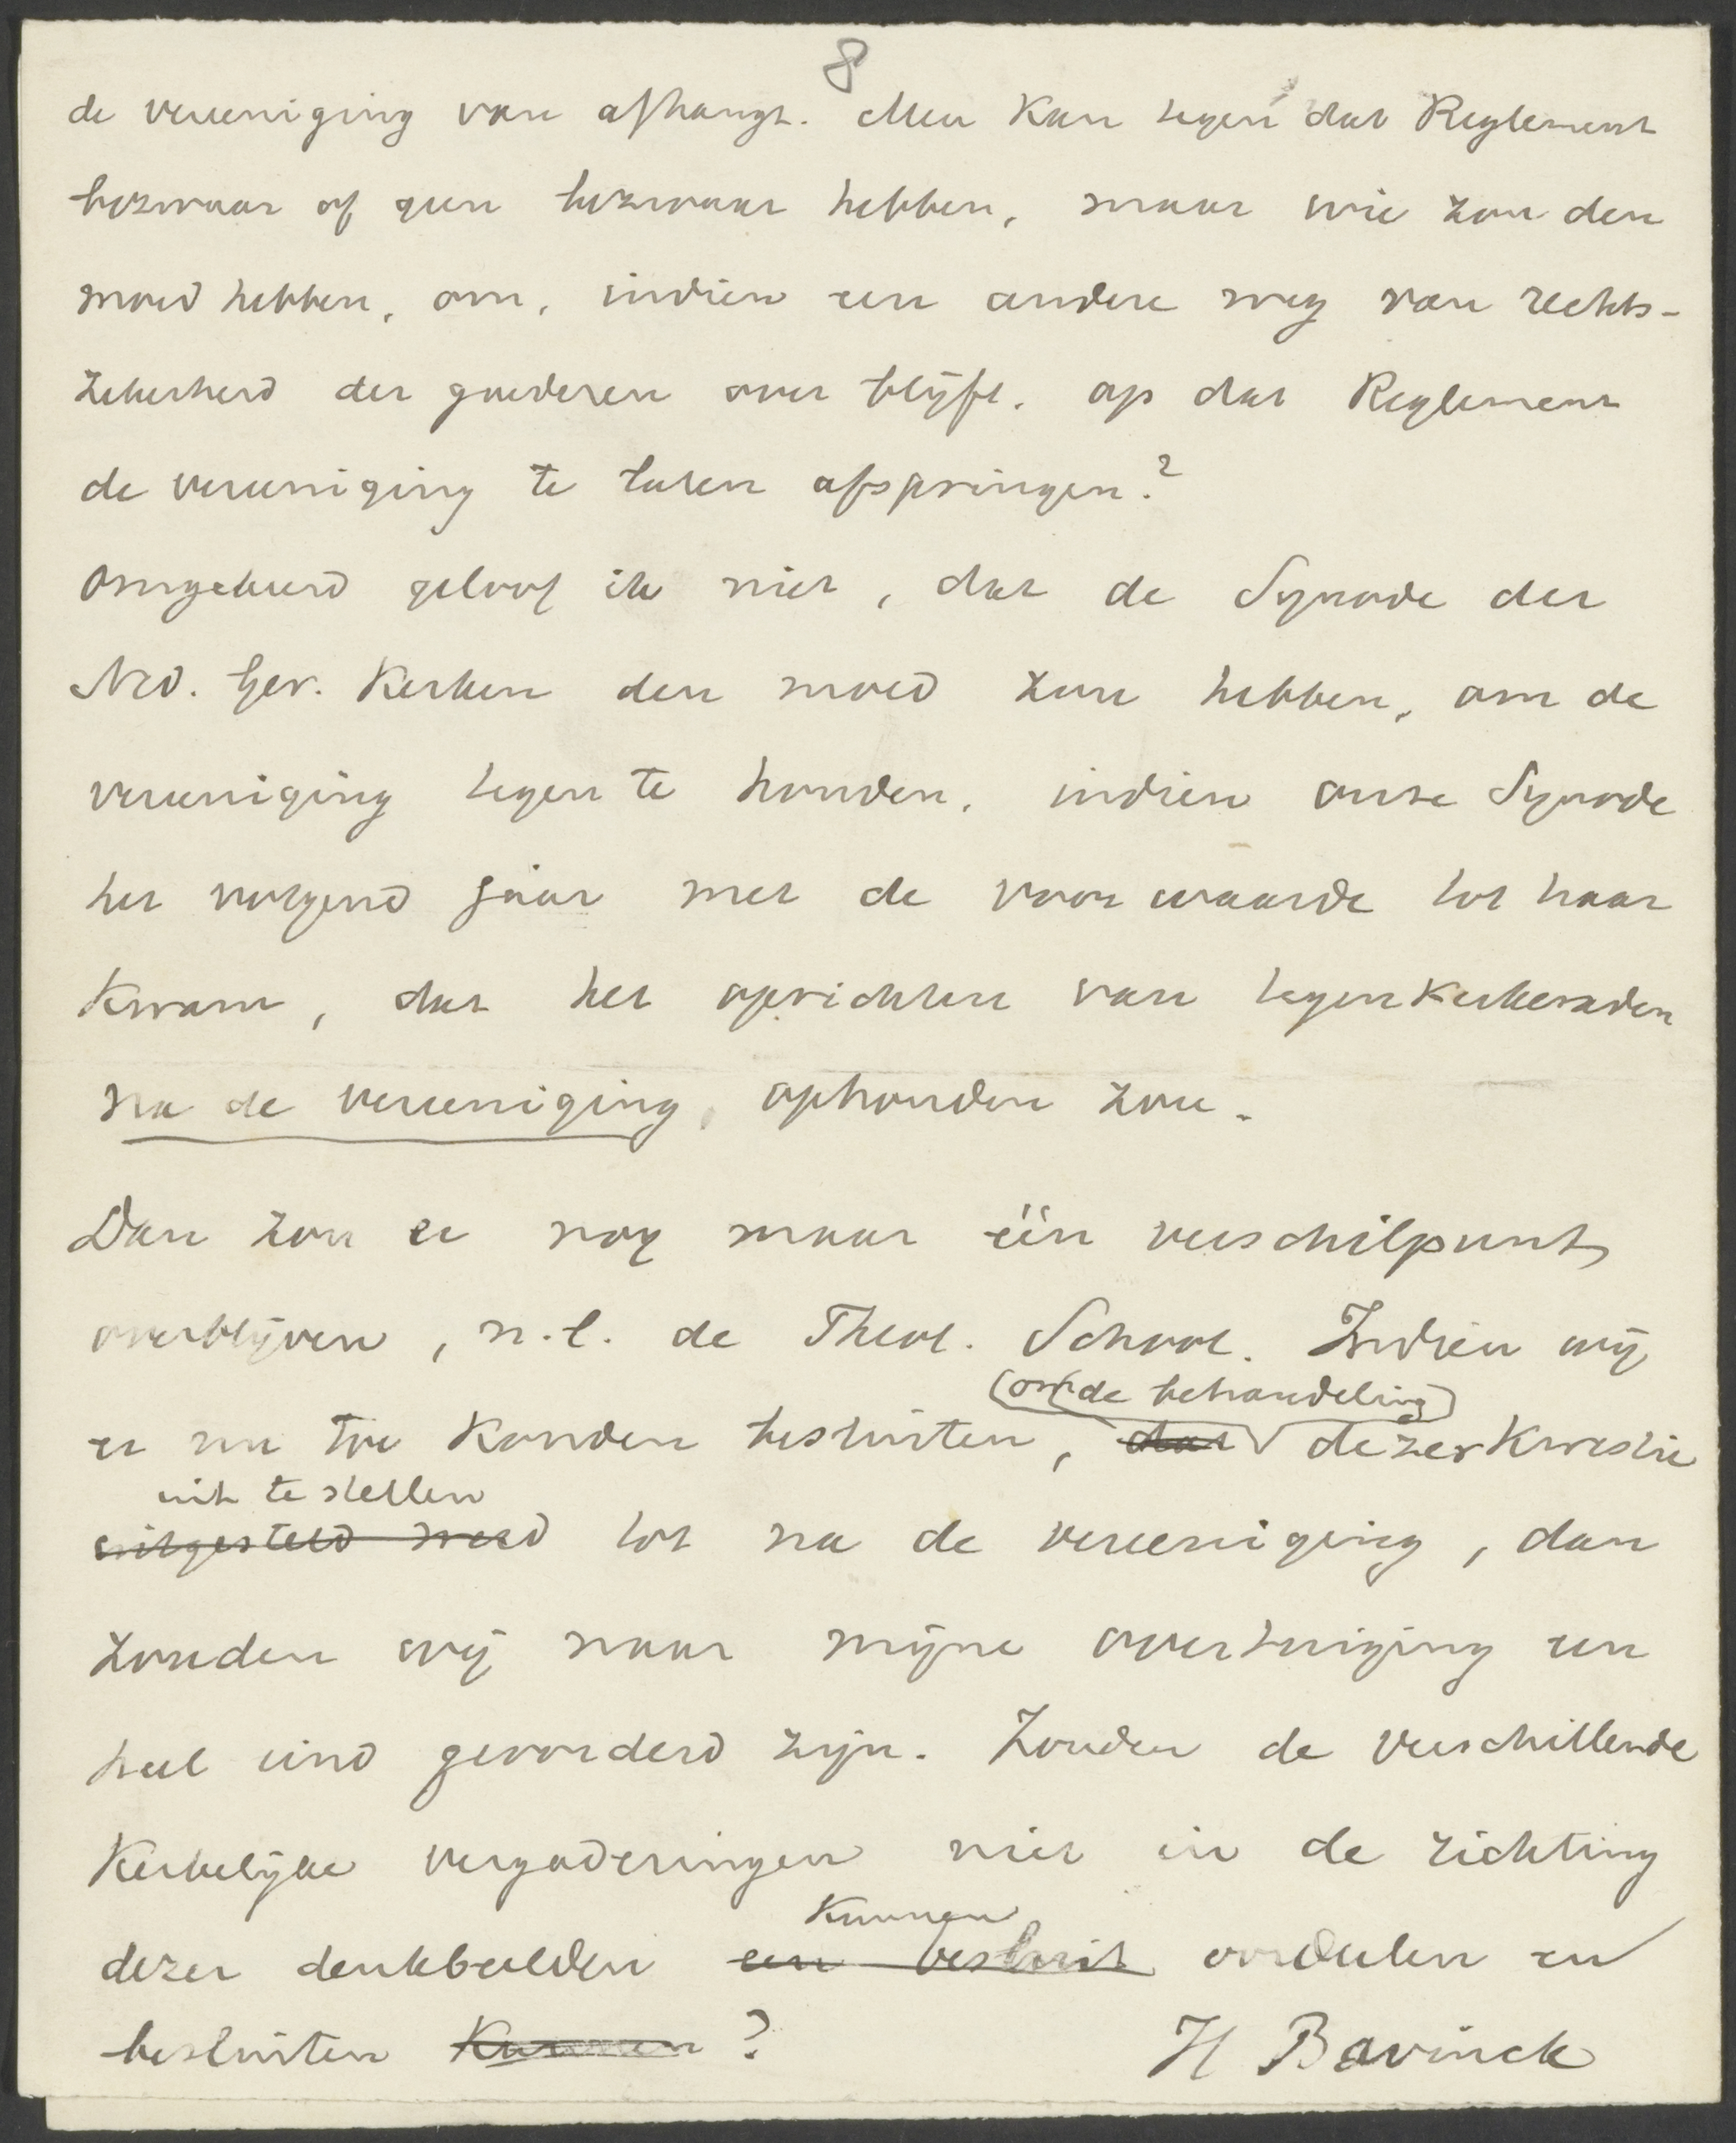 8
de vereeniging van afhangt. Men kan tegen dat Reglement
bezwaar of geen bezwaar hebben, maar wie zou den
moed hebben, om, indien een andere weg van rechts-
zekerheid der goederen over blijft, op dat Reglement
de vereeniging te laten afspringen?
Omgekeerd geloof ik niet, dat de Synode der
Ned. Ger. Kerken den moed zou hebben, om de
vereeniging tegen te houden, indien onze Synode
het volgend jaar met de voorwaarde tot haar
kwam, dat het oprichten van tegenkerkeraden
na de vereeniging, ophouden zou.
Dan zou er nog maar één verschilpunt
overblijven, n.l. de Theol. School. Indien wij
om de behandeling
er nu toe konden besluiten, dat dezer kwestie
uit te stellen
uitgesteld werd tot na de vereeniging, dan
zouden wij naar mijne overtuiging een
heel eind gevorderd zijn. Zouden de verschillende
Kerkelijke vergaderingen niet in de richting
kunnen
dezer denkbeelden een besluit oordeelen en
besluiten kunnen?
H Bavinck